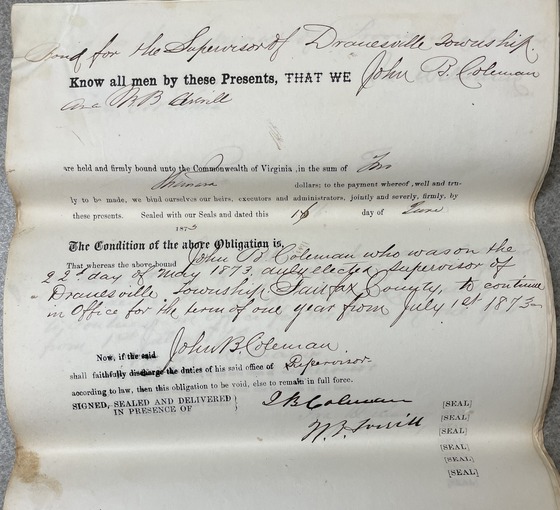 Bond for the Supervisor of Dranesville Township.
Know all men by these Presents, THAT WE John B. Coleman
and W B
are held and firmly bound unto the Commonwealth of Virginia ,in the sum of
Thousand dollars; to the payment whereof ,well and tru-
ly to be made, we bind ourselves our heirs, executors and administrators, jointly and severly, firmly, by
these presents. Sealed with our Seals and dated this day of June
1873
The Condition of the above Obligation is,
That whereas the above bound John B Coleman who was on the
22d day of May 1873, duly elected Supervisor of
Dranesville Township Fairfax County, to continue
in Office for the term of one year from July 1st 1873
Now, if the said John B. Coleman
shall faithfully discharge the duties of his said office of Supervisor
according to law, then this obligation to be void, else to remain in full force.
SIGNED, SEALED AND DELIVERED }
IN PRESENCE OF
J B Coleman [SEAL]
[SEAL]
[SEAL]
[SEAL]
[SEAL]
[SEAL]